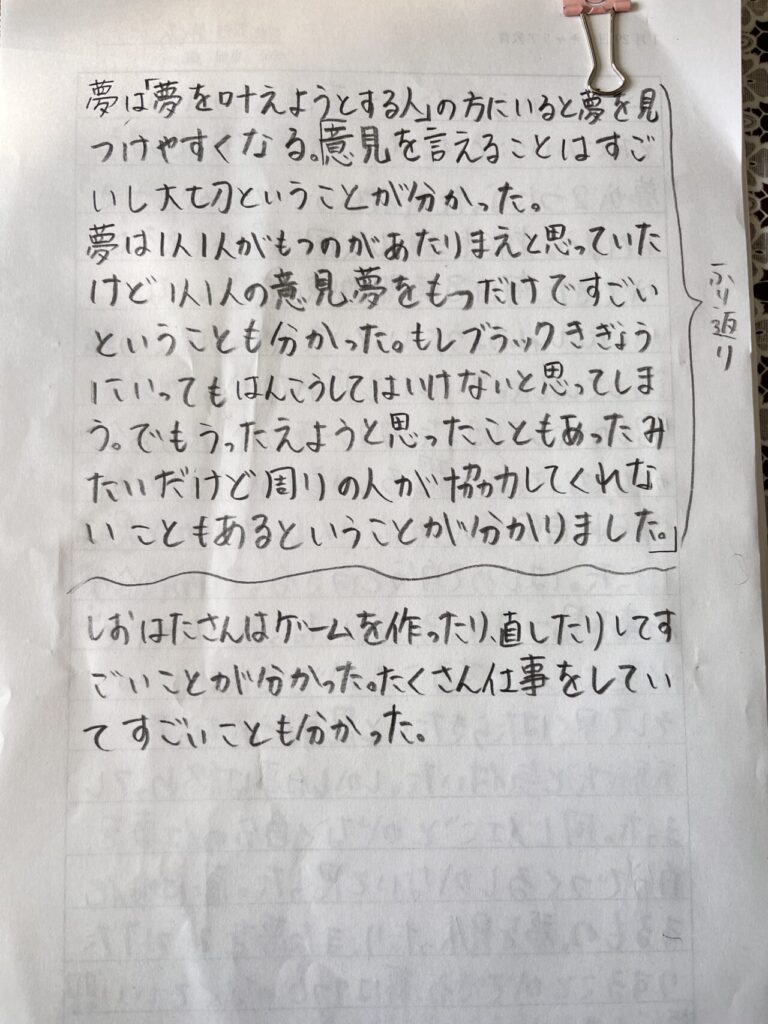 夢は「夢を叶えようとする人」の方にいると夢を見
つけやすくなる。「意見を言えることはすご
いし大切ということが分かった。
夢は1人1人がもつのがあたりまえと思っていた
けど1人1人の意見夢をもつだけですごい
ということも分かった。もしブラックきぎょう
にいってもはんこうしてはいけないと思ってしま
う。でもうったえようと思ったこともあったみ
たいだけど周りの人が協力してくれな
いこともあるということが分かりました。」
ふり返り
しおはたさんはゲームを作ったり、直したりしてす
ごいことが分かった。たくさん仕事をしてい
てすごいことも分かった。